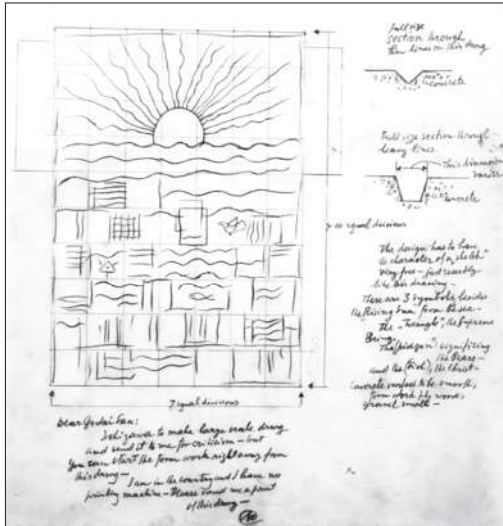 full size
section through
thin lines on this drwg
concrete
Full size section through
heavy lines
This dimension
varies
concrete
10 equal divisions
The design has to have
the character of a sketch
very free – just exactly
like this drawing –
There are 3 symbols besides
the Rising Sun from the sea –
the "Triangle", the Supreme
Being,
The (pidgeon) signifying
the Peace –
and the (Fish), the Christ –
Concrete surface to be smooth,
form work ply wood,
ground smooth –
7 equal divisions
Dear Godai San:
Ishigawa to make large scale drwg
and send it to me for criticism – but
you can start the form work right away from
this drwg –
I am in the country and I have no
printing machine – Please send me a print
of this drwg –